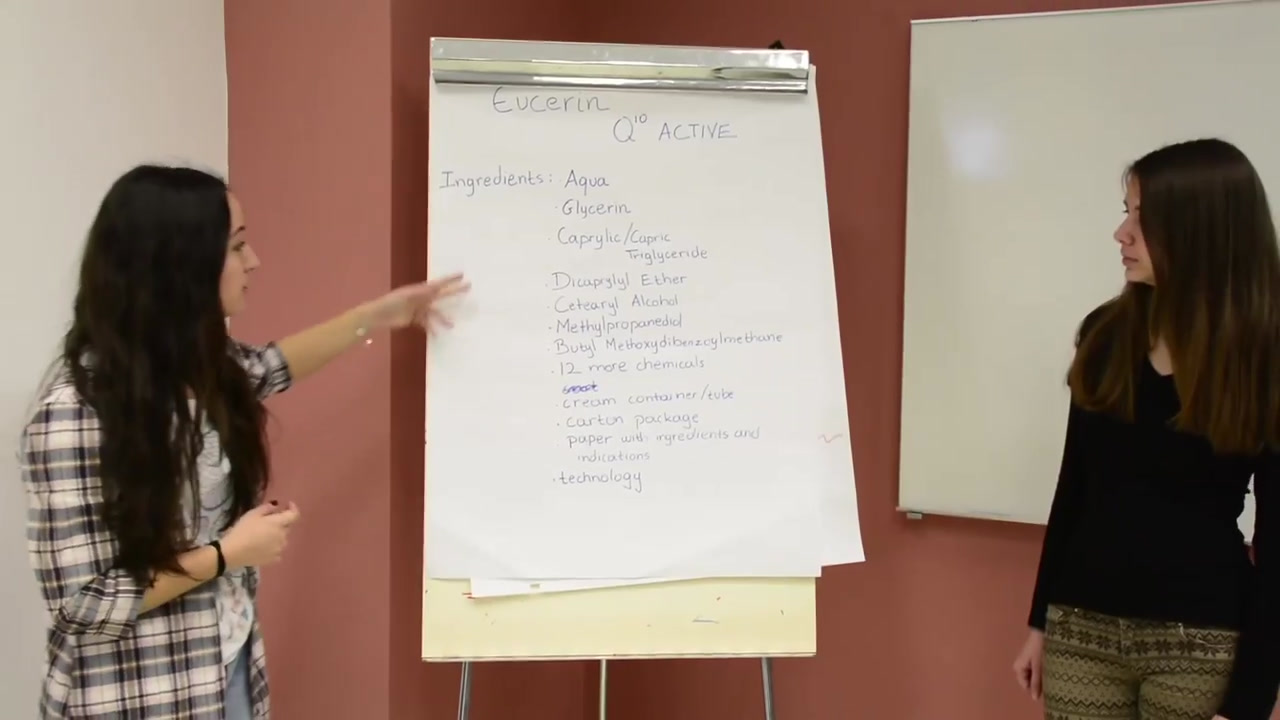 Eucerin
Q10 ACTIVE
Ingredients: Aqua
· Glycerin
· Caprylic/Capric
Triglyceride
· Dicaprylyl Ether
· Cetearyl Alcohol
· Methylpropanediol
· Butyl Methoxydibenzoylmethane
· 12 more chemicals
· cream container/tube
· carton package
paper with ingredients and
indications
· technology